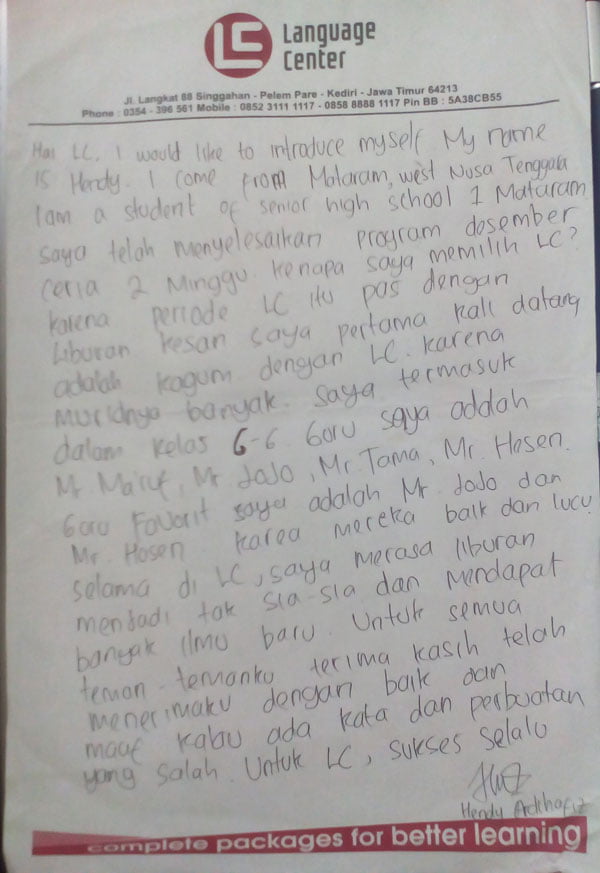 LC
Language
Center
Jl. Langkat 88 Singgahan - Pelem Pare - Kediri - Jawa Timur 64213
Phone : 0354 - 396 561 Mobile : 0852 3111 1117 - 0858 8888 1117 Pin BB : 5A38CB55
Hai LC, I would like to introduce myself. My name
is Hendy. I come from Mataram, west Nusa Tenggara
I am a student of senior high school 1 Mataram
saya telah menyelesaikan program dosember
ceria 2 Minggu. kenapa saya memilih LC?
karena periode LC itu pas dengan
liburan kesan saya pertama kali datang
adalah kagum dengan LC. karena
muridnya banyak. saya termasuk
dalam kelas G-6. Goru saya adalah
Mr. Ma'ruf, Mr JoJo, Mr. Tama, Mr. Hosen.
Goru Favorit saya adalah Mr. JoJo dan
Mr. Hosen karea mereka baik dan lucu
selama di LC, saya merasa liburan
menjadi tak sia-sia dan Mendapat
banyak ilmu baru. Untuk semua
teman-temanku terima kasih telah
menerimaku dengan baik dan
maaf kalau ada kata dan perbuatan
yang salah. Untuk LC, sukses selalu
Hendy
complete packages for better learning